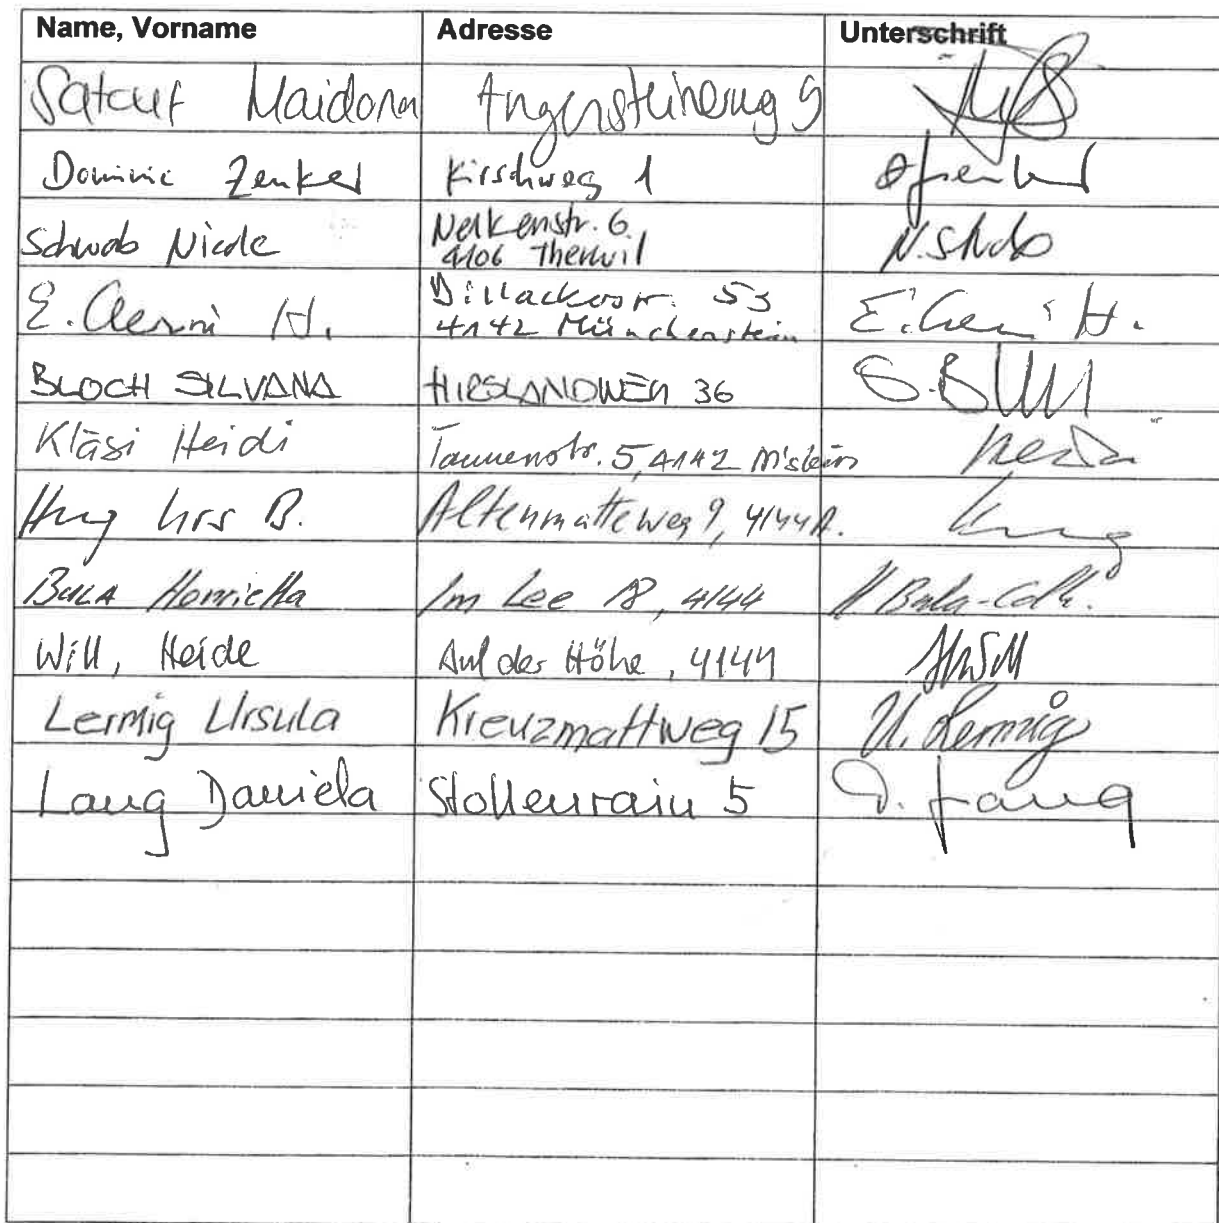 Name, Vorname Adresse Unterschrift
Maidona Angensteinerweg 9
Dominic Zenker Kirschweg 1
Schwab Nicole Nelkenstr. 6
4106 Therwil N. Schwab
E. Aerni H. Dillackerstr. 53
4142 Münchenstein E. Aerni H.
BLOCH SILVANA HIRSLANDWEG 36
Kläsi Heidi Tannenstr. 5, 4142 M'stein
Hug Urs B. Altenmatteweg 9, 4144 A. Hug
BULA Henrietta Im Lee 18, 4144
Will, Heide Auf der Höhe, 4144
Lermig Ursula Kreuzmattweg 15 U. Lermig
Lang Daniela Stollenrain 5 D. Lang